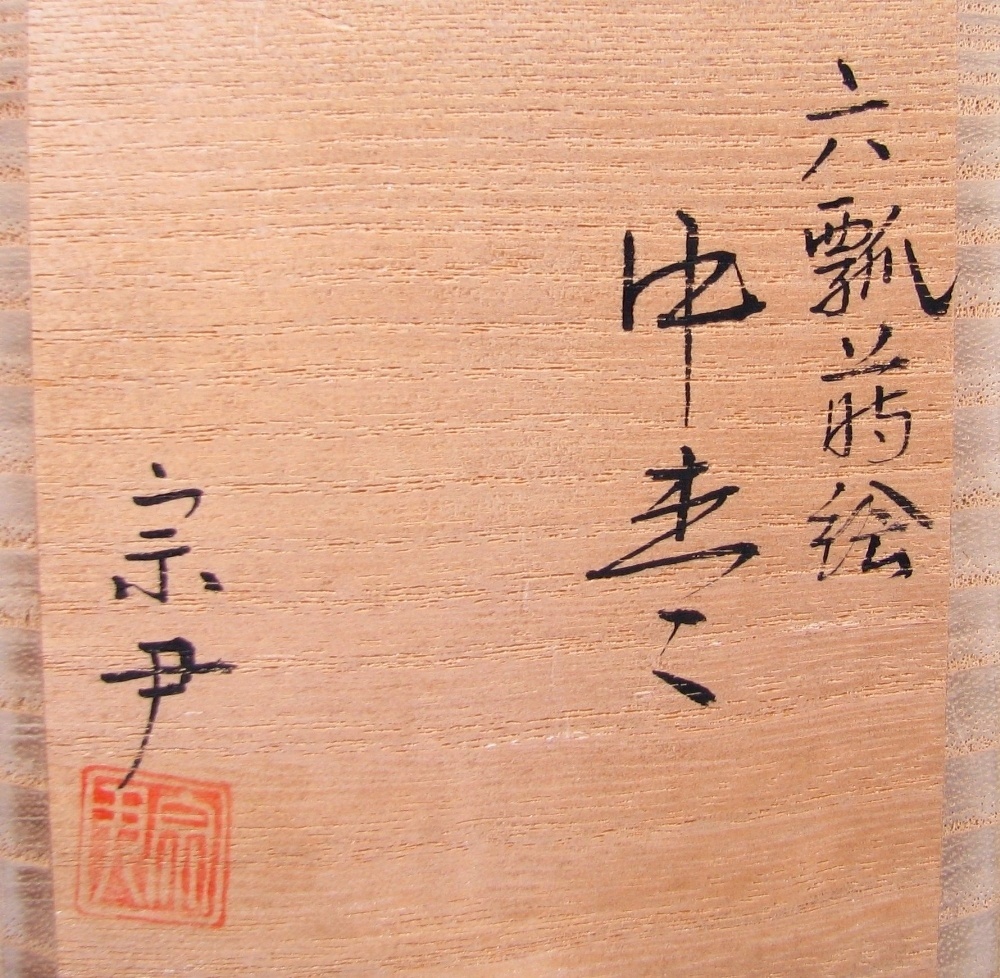 六瓢蒔絵
中棗
宗尹
宗尹